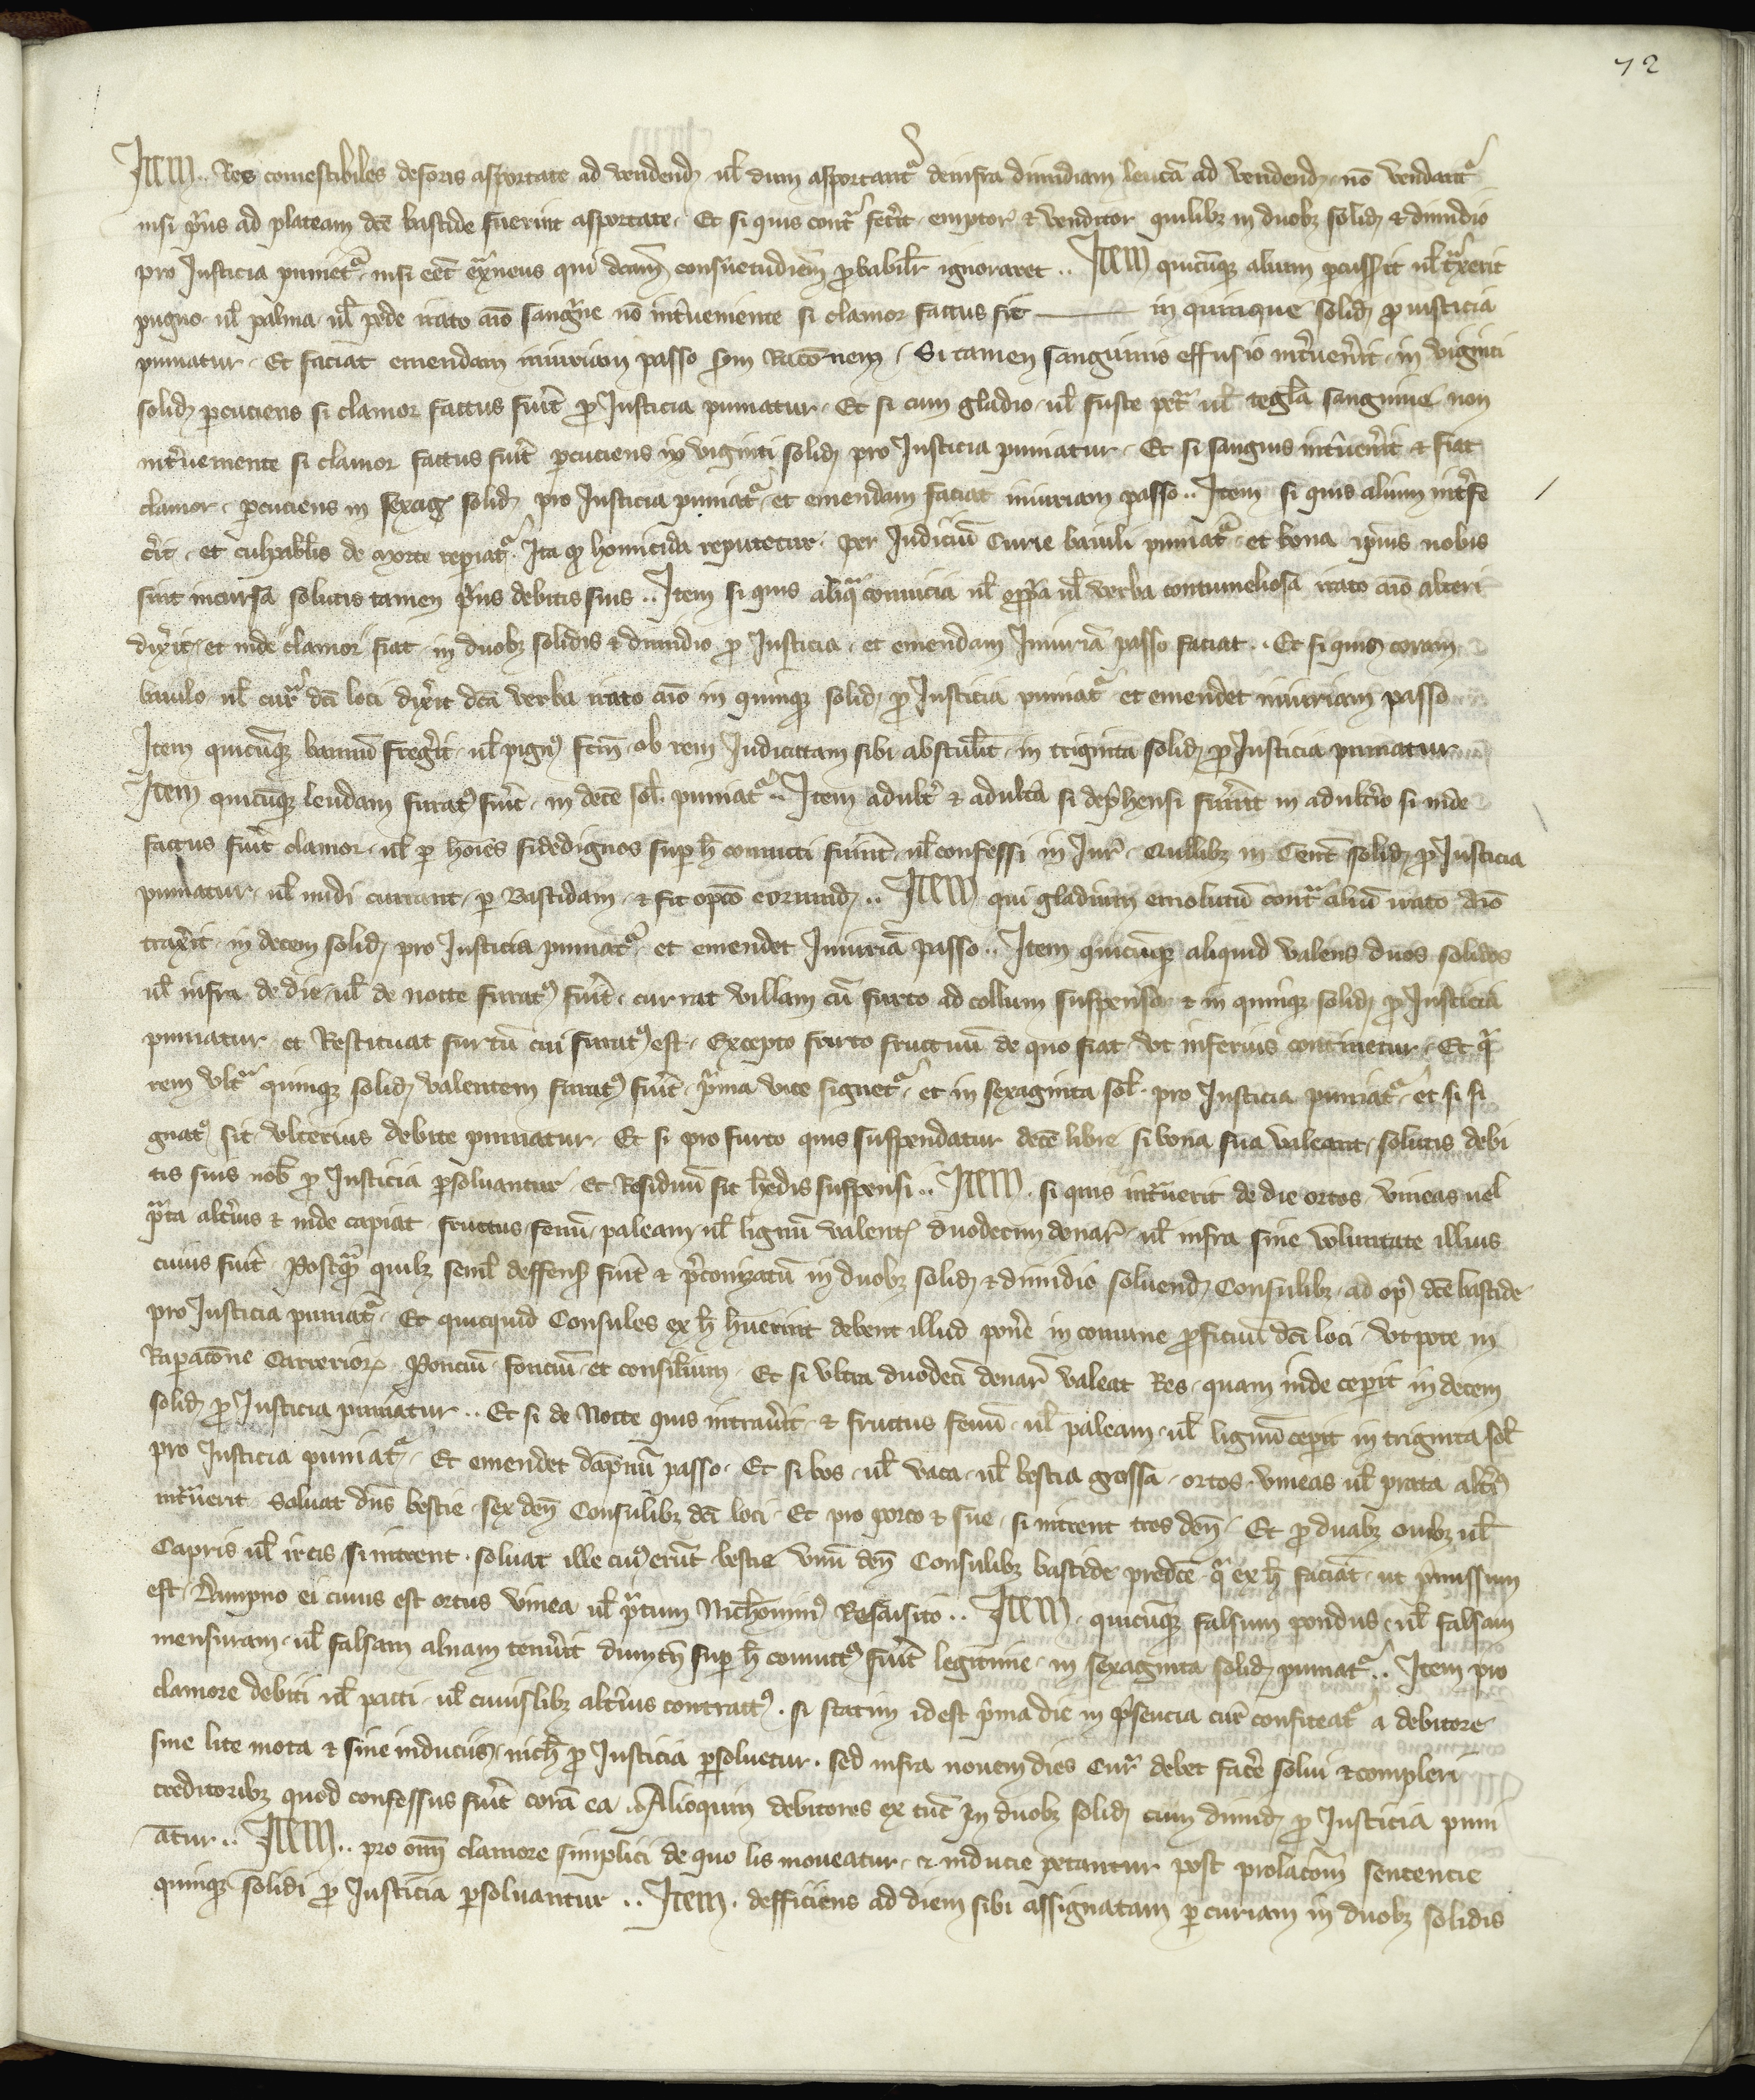 72
Item .. Res comestibiles deforis asportate ad vendend ul dum asportantr deinfra dimidiam leucā ad vendend nō vendantr
nisi prius ad plateam dcē bastide fuerint asportate . Et si quis contra fecerit . emptor & venditor quilibz in duobz solid & dimidio
pro Justicia punietr . nisi eēt exraneus qui dictam consuetudinem probabilr ignoraret .. Item quicūqz alium pcusserit ul traxerit
pugno ul palma ul pede irato aīo sanguine nō interveniente si clamor factus sit —— in quinque solid pro iusticia
puniatur . Et faciat emendam iniuriam passo scdm racōnem . Si tamen sanguinis effusio intervenerit in viginti
solid pcuciens si clamor factus fuīt pro Justicia puniatur . Et si cum gladio ul fuste petra ul tegla sanguine non
interveniente si clamor factus fuīt pcuciens in viginti solid pro Justicia puniatur . Et si sanguis intervenerit & fiat
clamor . pcuciens in sexag solid pro Justicia puniatr et emendam faciat iniuriam passo .. Item si quis alium interfe
cerit . et culpabilis de morte repiatr . Ita qz homicida reputetur . per Judiciū Curie baiuli puniatr . et bona ipius nobis
sint incursa solutis tamen prius debitis suis .. Item si quis aliqua conuicia ul opprobria ul verba contumeliosa irato aīo alteri
dixerit . et inde clamor fiat in duobz solidis & dimidio pro Justicia . et emendam Iniuriā passo faciat .. Et si quis coram
baiulo ul curia dcī loci dixerit dcā verba irato aīo in quinqz solid pro Justicia puniatr et emendet iniuriam passo
Item quicūqz bannū fregerit ul pignus fcm ob rem Iudicatam sibi abstulīt in triginta solid pro Justicia puniatur
Item quicūqz leudam furatus fuīt in decē sol puniatr .. Item adulter & adultera si deprehensi fuerint in adulterio si inde
factus fuīt clamor . ul p hoīes fidedignos sup h conuicti fuerint ul confessi in Jure . Quilibz in Cent solid pro Justicia
puniatur . ul nudi currant p Bastidam & sit opcō eorumd .. Item qui gladium emolutū contra aliū irato aīo
traxerit in decem solid pro Justicia puniatr et emendet Iniuriā passo .. Item quicūqz aliquid valens duos solidos
ul infra de die ul de nocte furatus fuīt . currat villam cū furto ad collum suspenso & in quinqz solid pro Justicia
puniatur et Restituat furtū cui furatus est . Excepto furto fructuū de quo fiat vt inferius continetur . Et qui
rem vltra quinqz solid valentem furatus fuīt prima vice signetr et in sexaginta sol pro Justicia puniatr et si si
gnatus sit vlterius debite puniatur . Et si pro furto quis suspendatur decē libre si bona sua valeant solutis debi
tis suis nob pro Justicia psoluantur . et Residuū sit heredis suspensi .. Item . si quis intrauerit de die ortos vineas uel
prata alterius & inde capiat fructus fenū paleam ul lignū valent duodecim denar ul infra sine voluntate illius
cuius fuīt . Postqua quilz semel deffensus fuīt & preconizatū in duobz solid & dimidio soluend Consulibz ad opus dcē bastide
pro Justicia puniatr . Et quicquid Consules ex h huerint debent illud ponere in comune proficiuū dcī loci vt pote in
Raparacōne Carrerior Ponciū fonciū et consilium . Et si vltra duodecī denar valeat Res quam inde ceperit in decem
solid pro Justicia puniatur .. Et si de Nocte quis intrauerit & fructus fenū ul paleam ul lignū cepit in triginta sol
pro Justicia puniatr . Et emendet dāpnū passo . Et si bos ul vaca ul bestia grossa ortos vineas ul prata alterius
intrauerit . Soluat dns bestie . sex den Consulibz dcī loci . Et pro porco & sue si intrent tres den . Et pro duabz ouibz ul
Capris ul ircis si intrent soluat ille cuius erūt bestie vnū den Consulibz bastide predcē qui ex h faciāt ut premissum
est . Dampno ei cuius est ortus vinea ul pratum Nichominus Resarsito .. Item . quicūqz falsum pondus ul falsam
mensuram ul falsam alnam tenuerit dumtn sup h conuictus fuīt legitime in sexaginta solid puniatr .. Item pro
clamore debiti ul pacti ul cuiuslibz alterius contractus . si statim idest prima die in presencia cure confiteatr a debitore
sine lite mota & sine inducijs nich pro Justicia psoluetur . sed infra nouem dies Curia debet facere solui & compleri
creditoribz quod confessus fuīt corā ea . Alioquin debitores ex tūc In duobz solid cum dimid pro Justicia puni
atur .. Item .. pro omī clamore simplici de quo lis moueatur . & inducie petantur post prolacōem sentencie
quinqz solidi pro Justicia psoluantur .. Item . defficiens ad diem sibi assignatam p curiam in duobz solidis